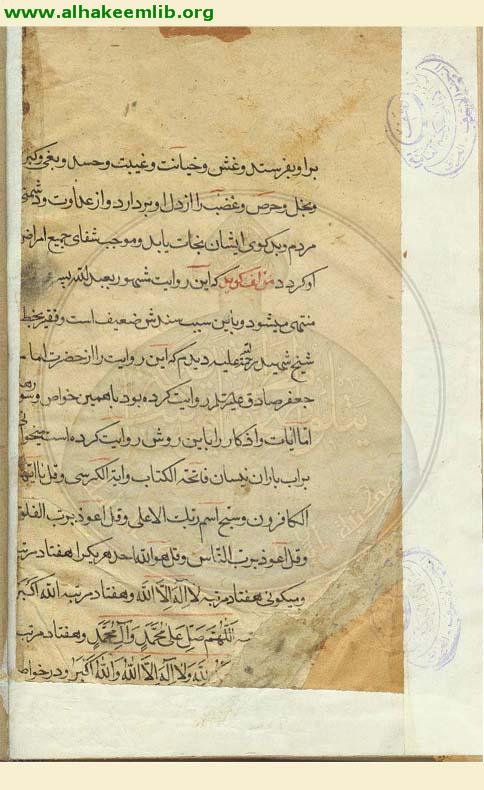 www.alhakeemlib.org
براو بفرستد و غش و خیانت و غیبت و حسد و بغی و کبر
و بخل و حرص و غضب را از دل او بردارد و از عداوت و دشمنی
مردم و بدکوی ایشان نجات یابد و موجب شفای جمیع امراض
او کردد مؤلف کوید که این روایت مشهور بعبد الله
منتهی میشود و باین سبب سندش ضعیف است و فقیر بخط
شیخ شهید رحمة الله علیه دیدم که این روایت را از حضرت امام
جعفر صادق روایت کرده بود با همین خواص و سوره
اما آیات و اذکار را باین روش روایت کرده است میخوانی
بر آب باران نیسان فاتحة الکتاب و ایة الکرسی و قل یا ایها
الکافرون و سبح اسم ربک الاعلی و قل اعوذ برب الفلق
و قل اعوذ برب الناس و قل هو الله احد هریکرا هفتاد مرتبه
و میکوئی هفتاد مرتبه لا اله الا الله و هفتاد مرتبه الله اکبر
اللهم صل علی محمد و آل محمد و هفتاد مرتبه
لله و لا اله الا الله و الله اکبر و در خواص